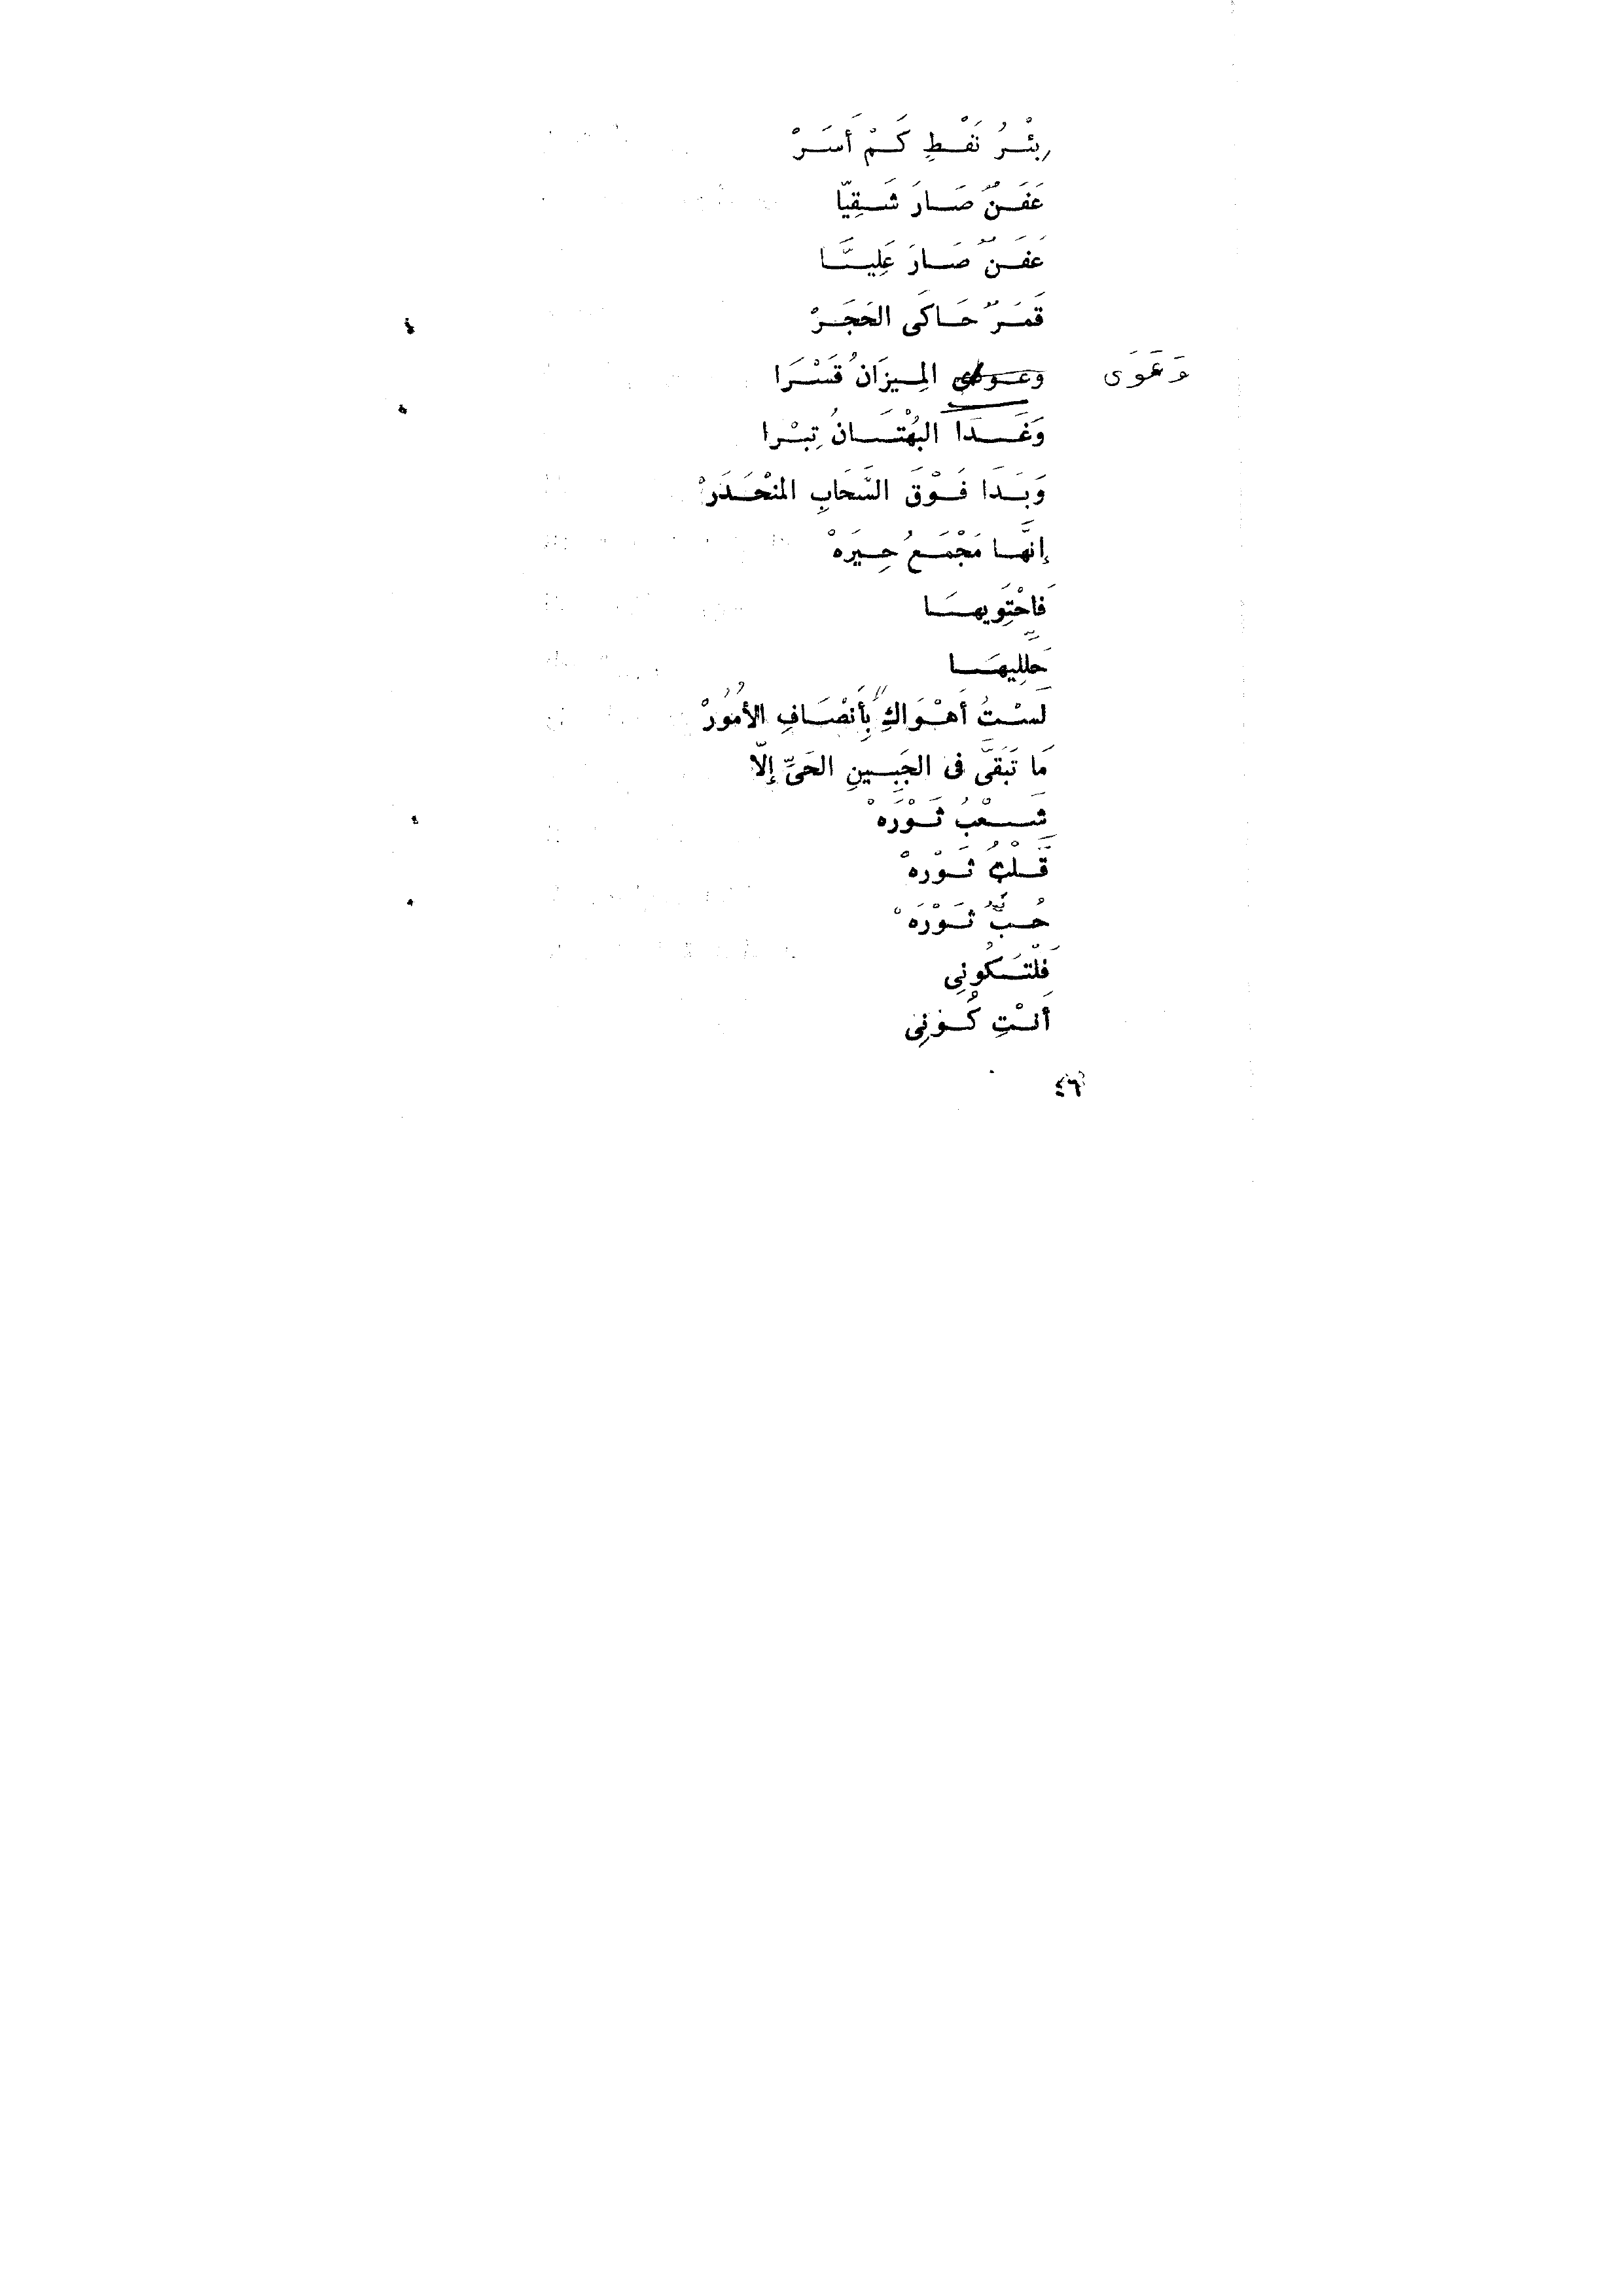 بِئْرُ نَفْطٍ كَمْ أَسَرْ
عَفَنٌ صَارَ شَقِيّا
عَفَنٌ صَارَ عَلِيَّا
قَمَرٌ حَاكَى الحَجَرْ
وَعَوَى
وعوى المِيزَانُ قَسْرَا
وَغَدَا البُهْتَانُ تِبْرا
وَبَدَا فَوْقَ السَّحَابِ المنْحَدَرْ
إنَّهَا مَجْمَعُ حِيرَهْ
فَاحْتَوِيهَا
حَلِّلِيهَا
لَسْتُ أَهْوَاكِ بِأَنْصَافِ الأُمُورْ
مَا تَبَقَّى فى الجَبِينِ الحَىِّ إلّا
شَعْبُ ثَوْرَهْ
قَلْبُ ثَوْرهْ
حُبُّ ثَوْرَهْ
فَلْتَكُونِى
أَنْتِ كُونِى
٤٦